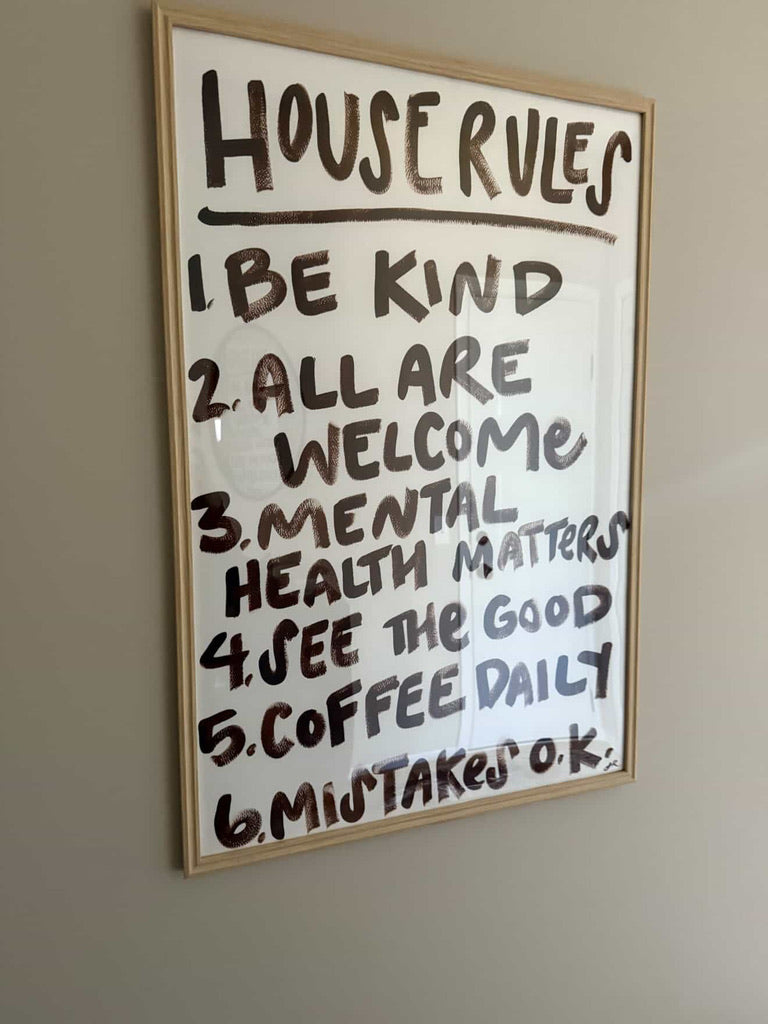 HOUSE RULES
1. BE KIND
2. ALL ARE
WELCOMe
3. MENTAL
HEALTH MATTeRS
4. SEE THe GOOD
5. COFFEE DAILY
6. MISTAKeS O.K.